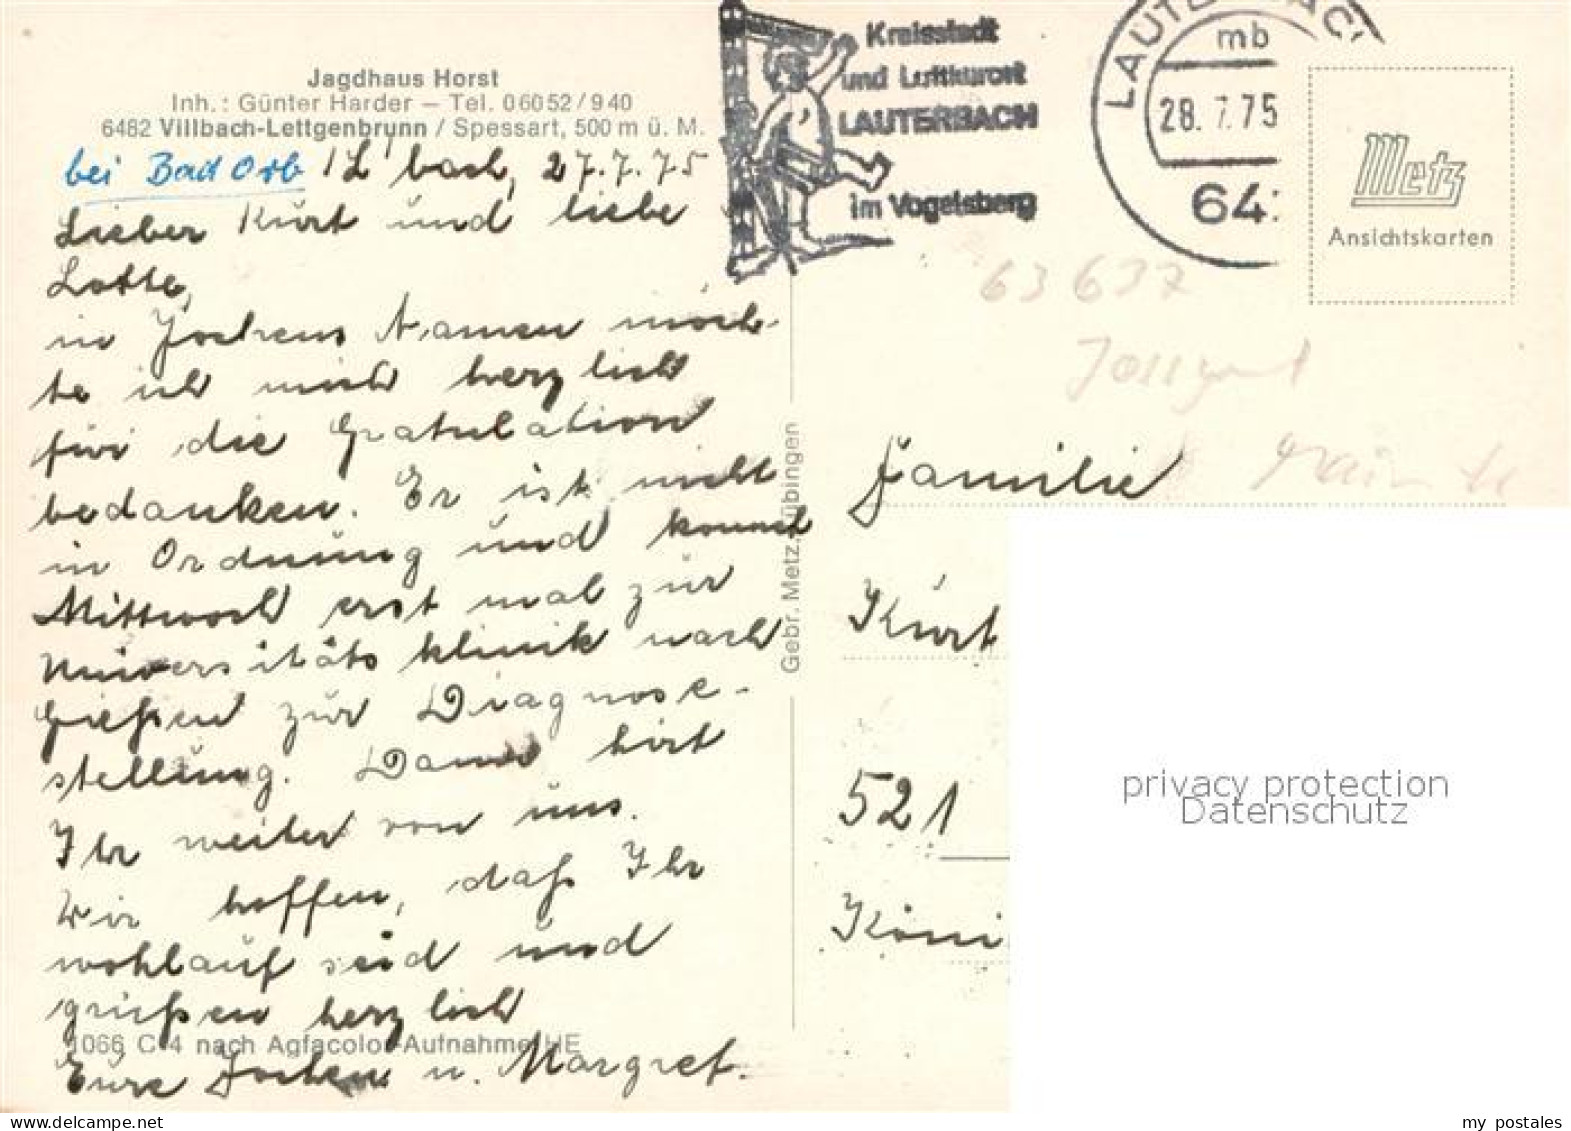 Jagdhaus Horst
Inh.: Günter Harder — Tel. 06052/940
6482 Villbach-Lettgenbrunn / Spessart, 500 m ü. M.
bei Bad Orb
L'bach, 27.7.75
Lieber Kurt und liebe
Lotte,
in Jochens Namen möch-
te ich mich herzlich
für die Gratulation
bedanken. Er ist nicht
in Ordnung und kommt
Mittwoch erst mal zur
Universitätsklinik nach
Gießen zur Diagnose-
stellung. Dann hört
Ihr weiter von uns.
Wir hoffen, daß Ihr
wohlauf seid und
grüßen herzlich
Eure Jochen u. Margret.
1066 C 4 nach Agfacolor-Aufnahme HE
Gebr. Metz, Tübingen
Kreisstadt
und Luftkurort
LAUTERBACH
im Vogelsberg
LAUTERBACH
mb
28.7.75
64
Metz
Ansichtskarten
63637
Jossgrund
Familie
Kurt
521
Köni
privacy protection
Datenschutz
www.delcampe.net
my_postales